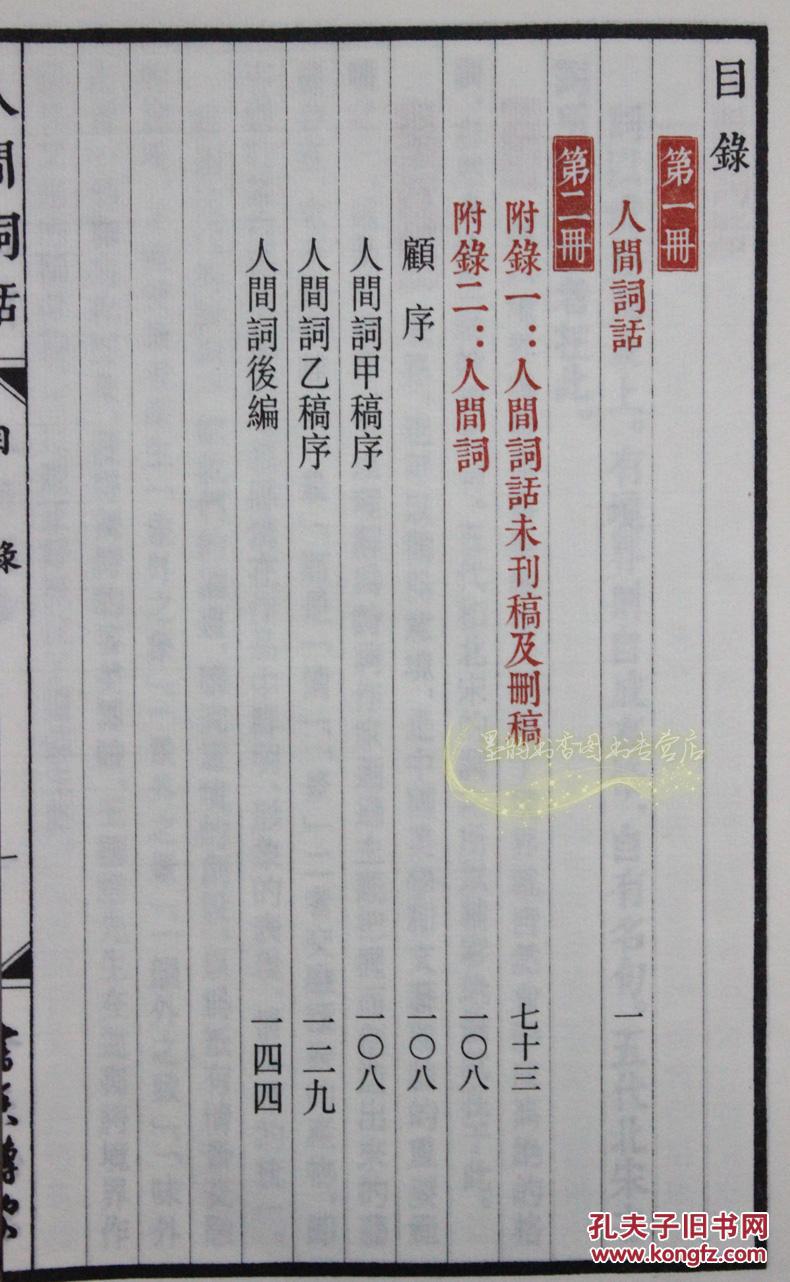 目錄
第一冊
人間詞話 一
第二冊
附錄一：人間詞話未刊稿及刪稿 七十三
附錄二：人間詞 一〇八
顧序 一〇八
人間詞甲稿序 一〇八
人間詞乙稿序 一二九
人間詞後編 一四四
人間詞話
目錄
一
墨韵书香图书专营店
孔夫子旧书网
www.kongfz.com